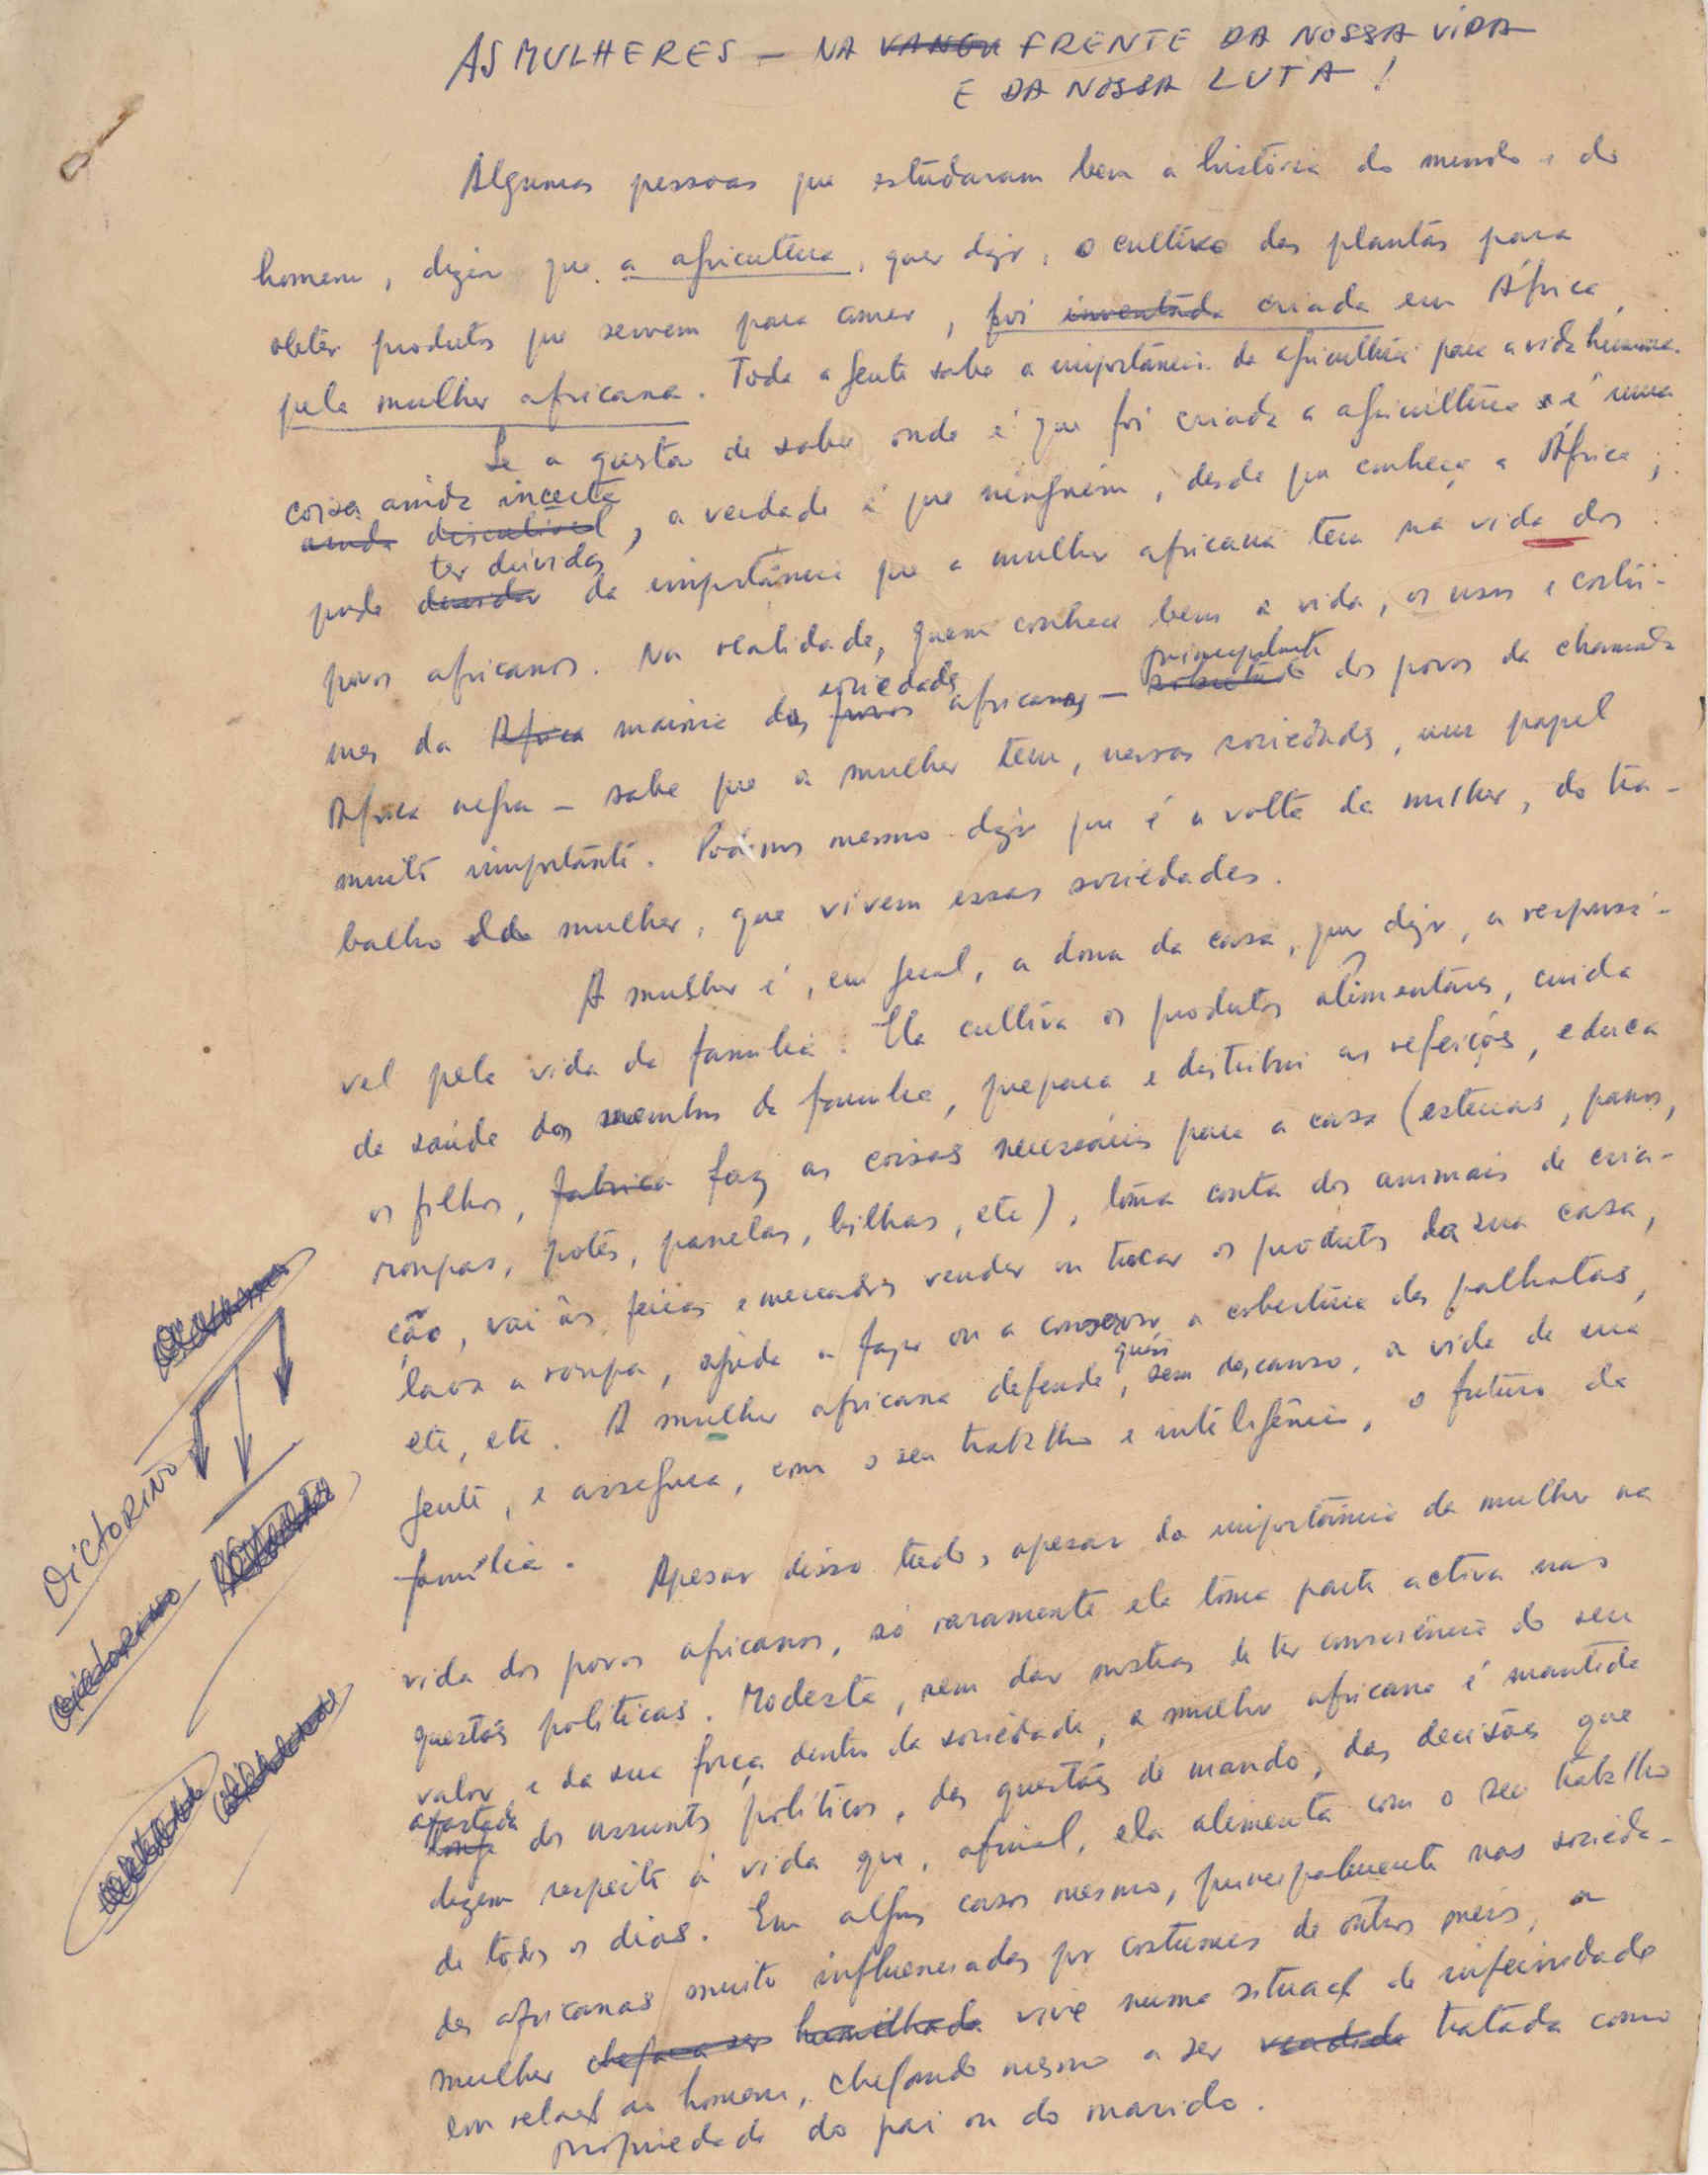 AS MULHERES — NA VANGU FRENTE DA NOSSA VIDA
E DA NOSSA LUTA!
Algumas pessoas que estudaram bem a história do mundo e do
homem, dizem que a agricultura, quer dizer, o cultivo das plantas para
obter produtos que servem para comer, foi inventada criada em África,
pela mulher africana. Toda a gente sabe a importância da agricultura para a vida humana.
Se a questão de saber onde é que foi criada a agricultura é uma
coisa ainda incerta
ainda discutível, a verdade é que ninguém, desde que conheça a África,
ter dúvidas
pode duvidar da importância que a mulher africana tem na vida dos
povos africanos. Na realidade, quem conhece bem a vida, os usos e costu-
sociedades principalmente
mes da África maioria das povos africanas — sobretudo dos povos da chamada
África negra — sabe que a mulher tem, nessas sociedades, um papel
muito importante. Podemos mesmo dizer que é à volta da mulher, do tra-
balho da mulher, que vivem essas sociedades.
A mulher é, em geral, a dona da casa, quer dizer, a responsá-
vel pela vida da família. Ela cultiva os produtos alimentares, cuida
da saúde dos membros da família, prepara e distribui as refeições, educa
os filhos, fabrica faz as coisas necessárias para a casa (esteiras, panos,
roupas, potes, panelas, bilhas, etc), toma conta dos animais de cria-
ção, vai às feiras e mercados vender ou trocar os produtos da sua casa,
lava a roupa, ajuda a fazer ou a conservar a cobertura das palhotas,
quasi
etc, etc. A mulher africana defende, sem descanso, a vida da sua
gente, e assegura, com o seu trabalho e inteligência, o futuro da
família.
Apesar disso tudo, apesar da importância da mulher na
vida dos povos africanos, só raramente ela toma parte activa nas
questões políticas. Modesta, sem dar mostras de ter consciência do seu
valor e da sua força dentro da sociedade, a mulher africana é mantida
afastada
longe dos assuntos políticos, das questões de mando, das decisões que
dizem respeito à vida que, afinal, ela alimenta com o seu trabalho
de todos os dias. Em alguns casos mesmo, principalmente nas socieda-
des africanas muito influenciadas por costumes de outros meios, a
mulher chega a ser humilhada vive numa situação de inferioridade
em relação ao homem, chegando mesmo a ser vendida tratada como
propriedade do pai ou do marido.
VICTORINO